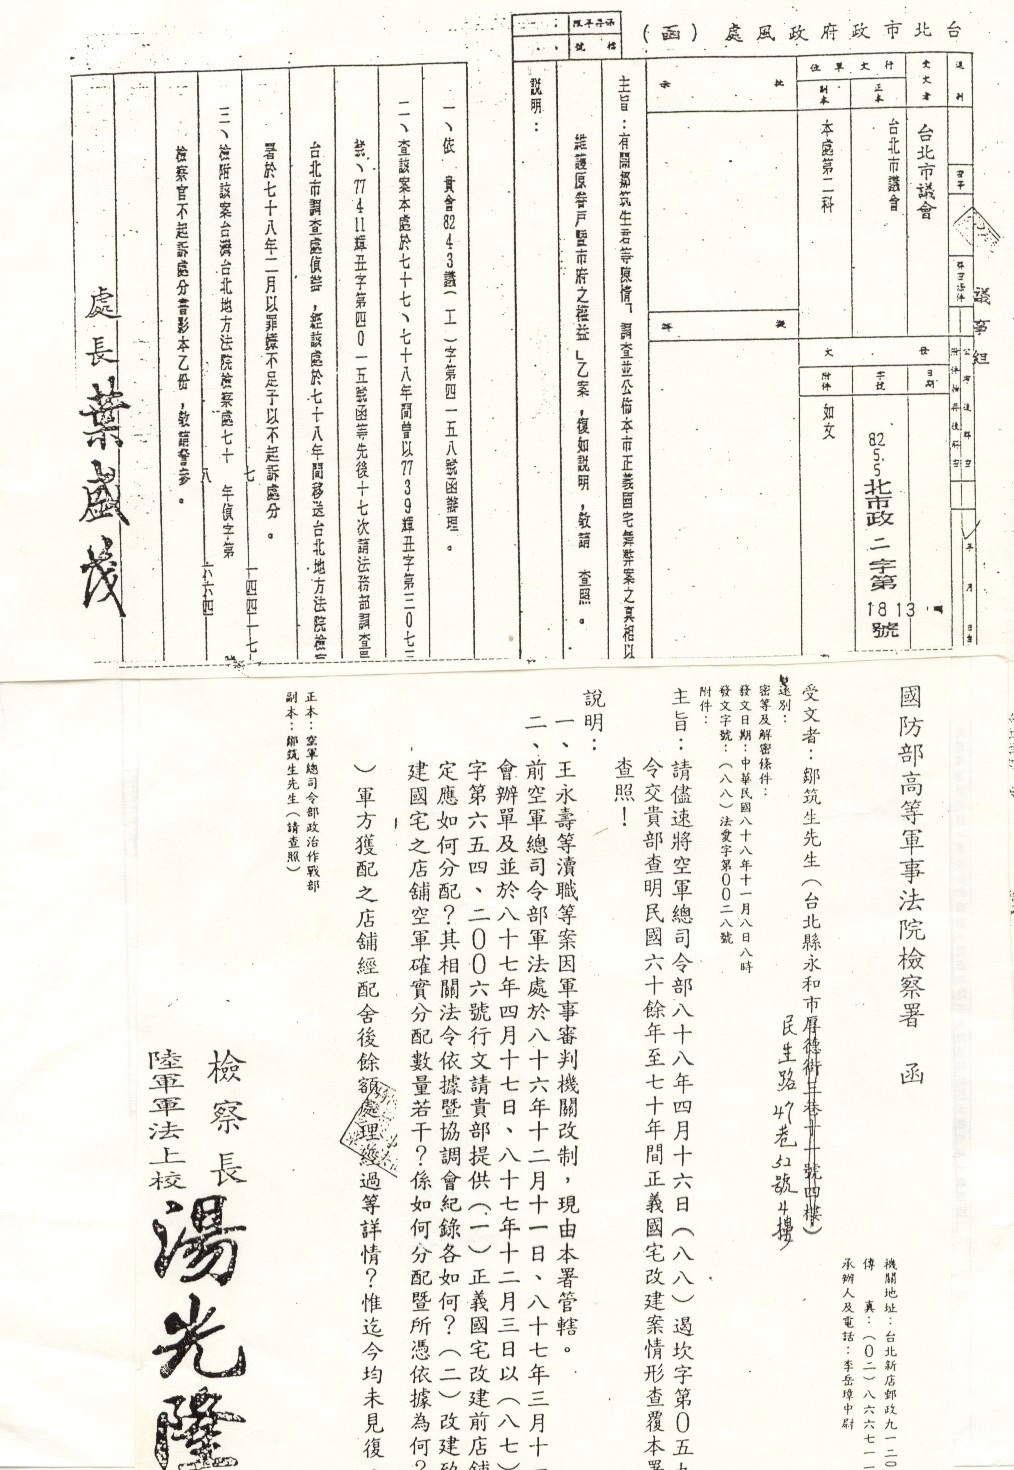 台北市政府政風處（函）
受文者
台北市議會
行文單位
正本
台北市議會
副本
本處第二科
發文
日期
字號
82.5.5北市政二字第1813號
附件
如文
議事組
批示
擬辦
主旨：有關鄒筑生君等陳情「調查並公佈本市正義國宅舞弊案之真相以
維護原眷戶暨市府之權益」乙案，復如說明，敬請　查照。
說明：
一、依　貴會82.4.3議（工）字第四一五八號函辦理。
二、查該案本處於七十七、七十八年間曾以77.3.9輝丑字第三０七三
號、77.4.11輝丑字第四０一五號函等先後十七次請法務部調查局
台北市調查處偵辦，經該處於七十八年間移送台北地方法院檢察
署於七十八年二月以罪嫌不足予以不起訴處分。
三、檢附該案台灣台北地方法院檢察處七十七八年偵字第一四四二七六六四
檢察官不起訴處分書影本乙份，敬請詧參。
處長葉盛茂
國防部高等軍事法院檢察署　函
機關地址：台北新店郵政九一二０
傳　真：（０二）八六六七一一
承辦人及電話：李岳璋中尉
受文者：鄒筑生先生（台北縣永和市厚德街三巷十十號四樓）
民生路47巷52號4樓
速別：
密等及解密條件：
發文日期：中華民國八十八年十一月八日八時
發文字號：（八八）法愛字第００二八號
附件：
主旨：請儘速將空軍總司令部八十八年四月十六日（八八）遏坎字第０五九
令交貴部查明民國六十餘年至七十年間正義國宅改建案情形查覆本署
查照！
說明：
一、王永壽等瀆職等案因軍事審判機關改制，現由本署管轄。
二、前空軍總司令部軍法處於八十六年十二月十一日、八十七年三月十一
會辦單及並於八十七年四月十七日、八十七年十二月三日以（八七）
字第六五四、二００六號行文請貴部提供（一）正義國宅改建前店舖
定應如何分配？其相關法令依據暨協調會紀錄各如何？（二）改建致
建國宅之店舖空軍確實分配數量若干？係如何分配暨所憑依據為何？
）軍方獲配之店舖經配舍後餘額處理經過等詳情？惟迄今均未見復。
正本：空軍總司令部政治作戰部
副本：鄒筑生先生（請查照）
檢察長
陸軍軍法上校
湯光隆